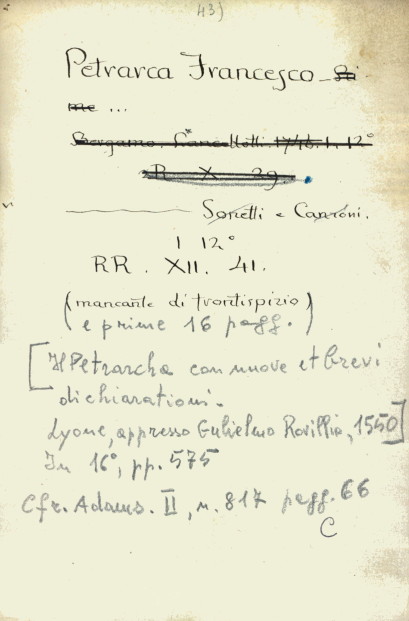 43)
Petrarca Francesco - Ri
me ...
Bergamo, Lancellotti. 1746. 1. 12°
R X 29
Sonetti e Canzoni.
1 12°
RR. XII. 41.
(mancante di frontispizio)
e prime 16 pagg.
[Il Petrarcha con nuove et brevi
dichiarationi.
Lyone, appresso Gulielmo Rovillio, 1550]
In 16°, pp. 575
Cfr. Adams. II, n. 817 pagg. 66
C